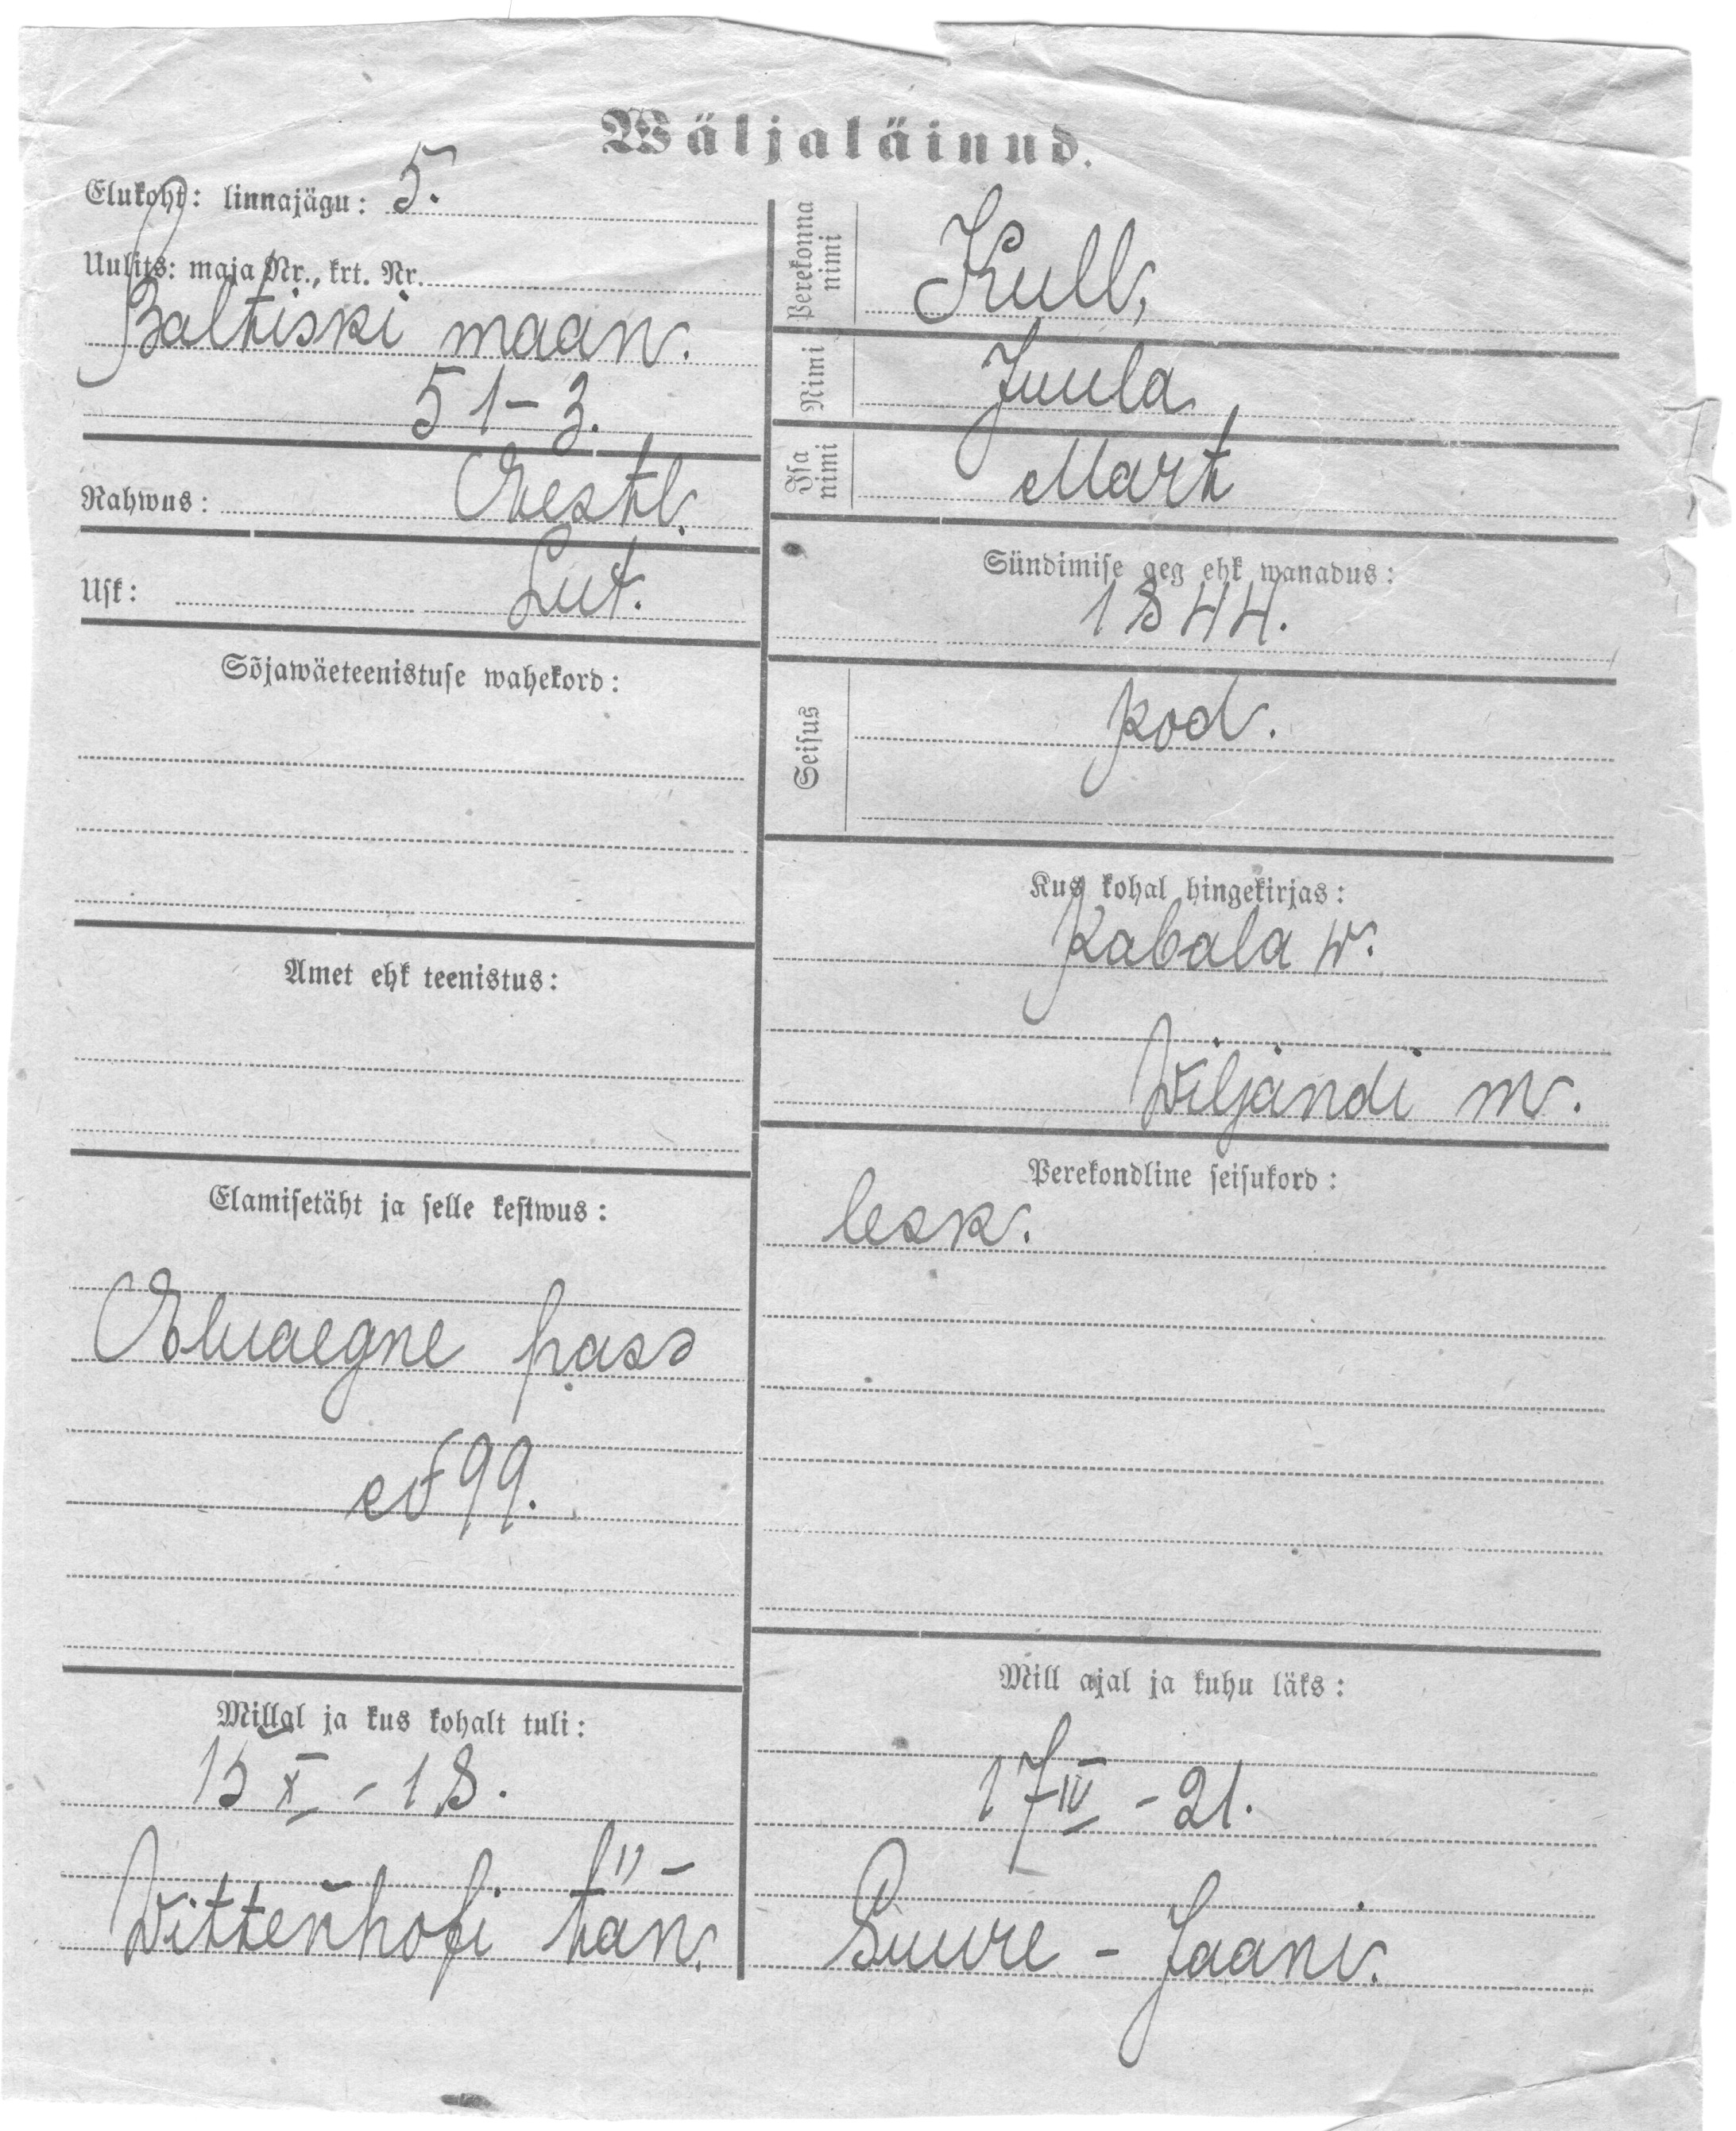 Wäljaläinud.
Elukoht: linnajägu: 5.
Uulits: maja Nr., krt. Nr.
Baltiski maan.
51-3.
Rahwus: Eestl.
Usk: Lut.
Sõjawäeteenistuse wahekord:
Amet ehk teenistus:
Elamisetäht ja selle kestwus:
Eluaegne pass
№ 99.
Millal ja kus kohalt tuli:
15 X - 18.
Wittenhofi tän.
Perekonna nimi
Kull,
Nimi
Juula
Isa nimi
Mart
Sündimise aeg ehk wanadus:
1844.
Seisus
kod.
Kus kohal hingekirjas:
Kabala w.
Wiljandi m.
Perekondline seisukord:
lesk.
Mill ajal ja kuhu läks:
17 IV - 21.
Suure - Jaani.